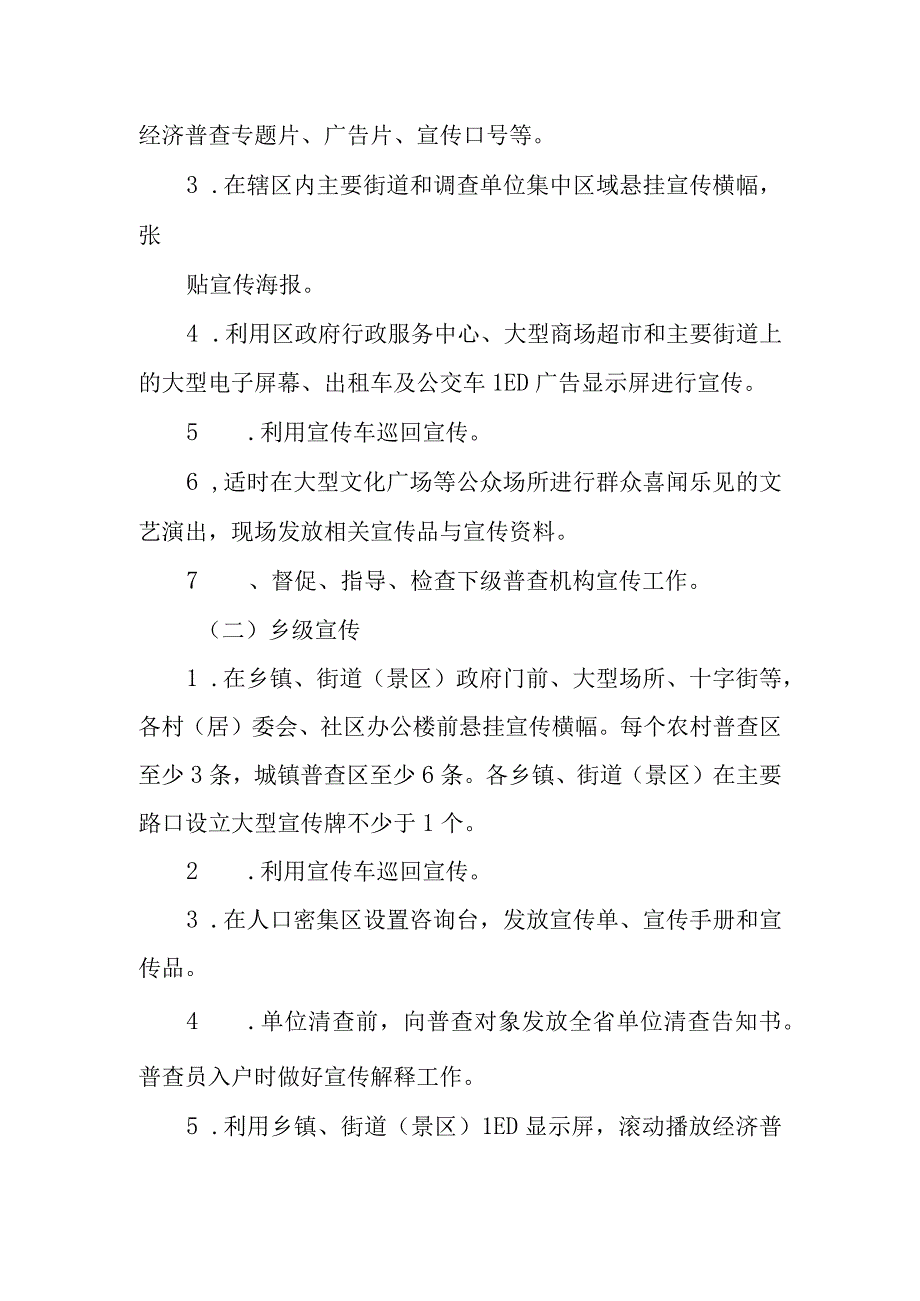 经济普查专题片、广告片、宣传口号等。
3 .在辖区内主要街道和调查单位集中区域悬挂宣传横幅，
张
贴宣传海报。
4 .利用区政府行政服务中心、大型商场超市和主要街道上
的大型电子屏幕、出租车及公交车 1ED 广告显示屏进行宣传。
5 .利用宣传车巡回宣传。
6 ,适时在大型文化广场等公众场所进行群众喜闻乐见的文
艺演出，现场发放相关宣传品与宣传资料。
7 、督促、指导、检查下级普查机构宣传工作。
（二）乡级宣传
1 .在乡镇、街道（景区）政府门前、大型场所、十字街等，
各村（居）委会、社区办公楼前悬挂宣传横幅。每个农村普查区
至少 3 条，城镇普查区至少 6 条。各乡镇、街道（景区）在主要
路口设立大型宣传牌不少于 1 个。
2 .利用宣传车巡回宣传。
3 .在人口密集区设置咨询台，发放宣传单、宣传手册和宣
传品。
4 .单位清查前，向普查对象发放全省单位清查告知书。
普查员入户时做好宣传解释工作。
5 .利用乡镇、街道（景区）1ED 显示屏，滚动播放经济普